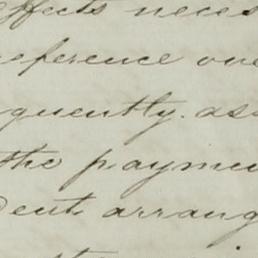 effects neces
eference ove
quently. as
the payme
dent arrang